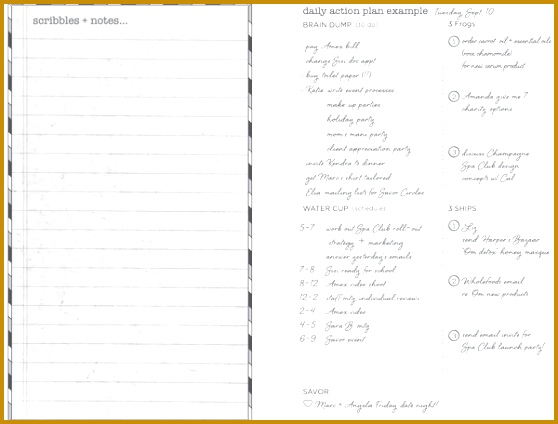 scribbles + notes...
daily action plan example Tuesday Sept 10
BRAIN DUMP (to do)
pay Amex bill
change Gigi doc appt
buy toilet paper (!!)
Katie write event processes
make up parties
holiday party
mom & mani party
client appreciation party
invite Kendra to dinner
get Marc's shirt tailored
Elisa mailing lists for Savor Circles
WATER CUP (schedule)
5-7 work out Spa Club roll-out
strategy + marketing
answer yesterday's emails
7-8 Gigi ready for school
8-12 Amex video shoot
12-2 staff mtg individual reviews
2-4 Amex video
4-5 Sara B mtg
6-9 Savor event
SAVOR
♡ Marc + Angela Friday date night!
3 Frogs
1 order carrot oil + essential oils
(rose chamomile)
for new serum product
2 Amanda give me 7
charity options
3 discuss Champagne
Spa Club design
concepts w/
3 SHIPS
1 Liz
send Harper's Bazaar
Om detox honey masque
2 Wholefoods email
re Om new products
3 send email invite for
Spa Club launch party!